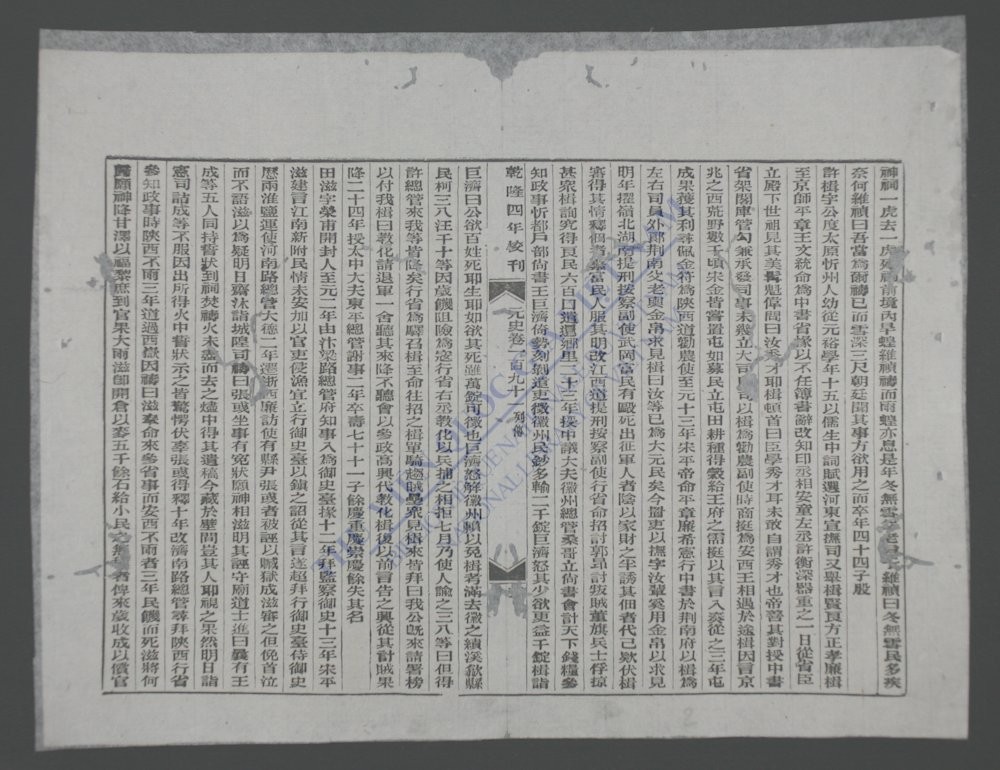 神祠一虎去一虎死祠前境內旱蝗維禎禱而雨蝗亦息是年冬無雪父老言於維禎曰冬無雪民多疾
奈何維禎曰吾當為爾禱已而雪深三尺朝廷聞其事方欲用之而卒年四十四子殷
許楫字公度太原忻州人幼從元裕學年十五以儒生中詞賦選河東宣撫司又舉楫賢良方正孝廉楫
至京師平章王文統命為中書省掾以不任簿書辭改知印丞相安童左丞許衡深器重之一日從省臣
立殿下世祖見其美髯魁偉問曰汝秀才耶楫頓首曰臣學秀才耳未敢自謂秀才也帝善其對授中書
省架閣庫管勾兼承發司事未幾立大司農司以楫為勸農副使時商挺為安西王相遇於途楫因言京
兆之西荒野數千頃宋金皆嘗置屯如募民立屯田耕種得穀給王府之需挺以其言入奏從之三年屯
成果獲其利尋佩金符為陝西道勸農使至元十三年宋平帝命平章廉希憲行中書於荊南府以楫為
左右司員外郎荊南父老輿金帛求見楫曰汝等已為大元民矣今置吏以撫字汝輩奚用金帛以求見
明年擢嶺北湖南提刑按察副使武岡富民有毆死出征軍人者陰以家財之半誘其佃者代己款伏楫
審得其情釋佃者繫富民人服其明改江西道提刑按察副使行省命招討郭昂討叛賊董旗兵士俘掠
甚眾楫詢究得良民六百口遣還鄉里二十三年授中議大夫徽州總管桑哥立尚書會計天下錢糧參
知政事忻都戶部尚書王巨濟倚勢刻剝遣吏徵徽州民鈔多輸二千錠巨濟怒其少欲更益千錠楫詣
乾隆四年校刊
元史卷一百九十一 列傳
巨濟曰公欲百姓死耶生耶如欲其死雖萬錠可徵也巨濟怒解徽州賴以免楫考滿去徽之績溪歙縣
民柯三八汪千十等因歲饑阻險為寇行省右丞教化以兵捕之相拒七月乃使人諭之三八等曰但得
許總管來我等皆降矣行省為驛召楫至命往招之楫單騎趨賊壘眾見楫來皆拜曰我公既來請署榜
以付我楫白教化請退軍一舍聽其來降不聽會以參政高興代教化楫復以前言告之興從其計賊果
降二十四年授太中大夫東平總管謝事二年卒壽七十一子餘慶重慶崇慶餘失其名
田滋字榮甫開封人至元二年由汴梁路總管府知事入為御史臺掾十二年拜監察御史十三年宋平
滋建言江南新附民情未安加以官吏侵漁宜立行御史臺以鎮之詔從其言遂超拜行御史臺侍御史
歷兩淮鹽運使河南路總管大德二年遷浙西廉訪使有縣尹張彧者被誣以贓獄成滋審之但俛首泣
而不語滋以為疑明日齋沐詣城隍司禱曰張彧坐事有冤狀願神相滋明其誣守廟道士進曰曩有王
成等五人同持誓狀到祠焚禱火未盡而去之燼中得其遺稿今藏於壁間豈其人耶視之果然明日詣
憲司詰成等不服因出所得火中誓狀示之皆驚愕伏辜張彧得釋十年改濟南路總管尋拜陝西行省
參知政事時陝西不雨三年道過西嶽因禱曰滋奉命來參省事而安西不雨者三年民饑而死滋將何
歸願神降甘澤以福黎庶到官果大雨滋即開倉以麥五千餘石給小民之無種者俾來歲收成以償官